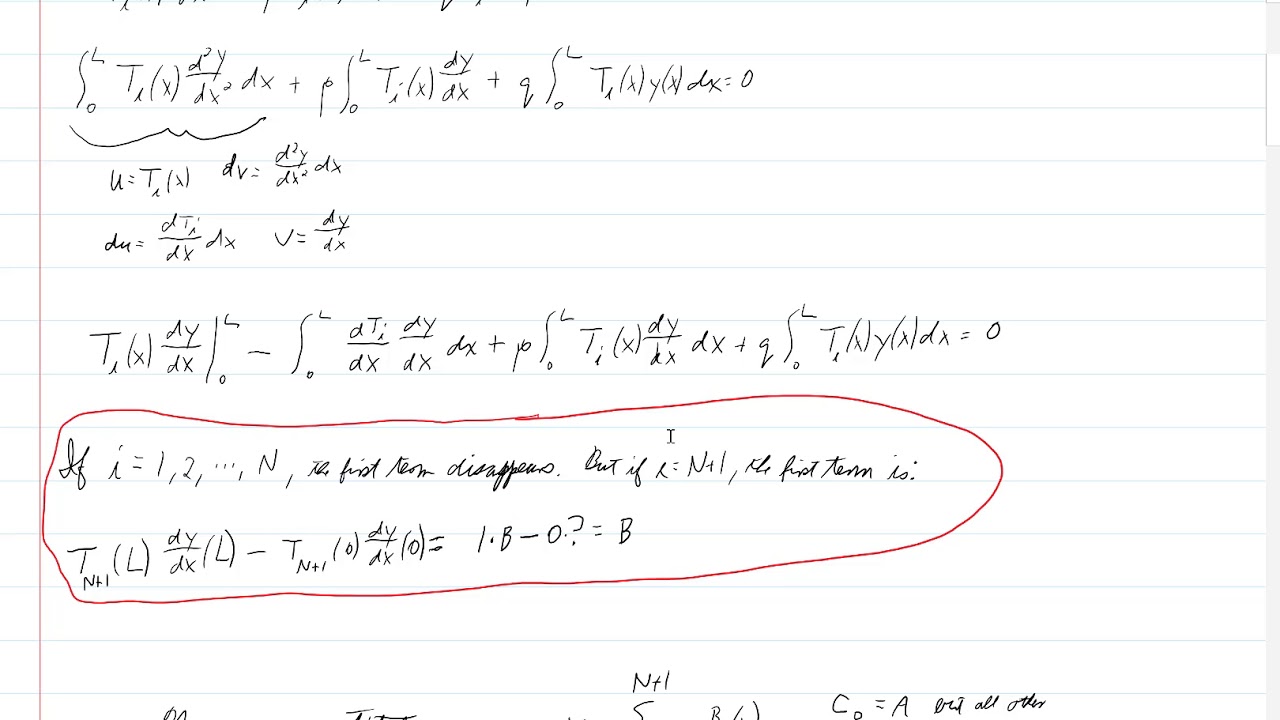 ∫₀ᴸ Tᵢ(x) d²y/dx² dx + p ∫₀ᴸ Tᵢ(x) dy/dx + q ∫₀ᴸ Tᵢ(x) y(x) dx = 0
u = Tᵢ(x) dv = d²y/dx² dx
du = dTᵢ/dx dx v = dy/dx
Tᵢ(x) dy/dx |₀ᴸ − ∫₀ᴸ dTᵢ/dx dy/dx dx + p ∫₀ᴸ Tᵢ(x) dy/dx dx + q ∫₀ᴸ Tᵢ(x) y(x) dx = 0
If i = 1, 2, ..., N, the first term disappears. But if i = N+1, the first term is:
T_{N+1}(L) dy/dx(L) − T_{N+1}(0) dy/dx(0) = 1·B − 0·? = B
N+1
C₀ = A but all other